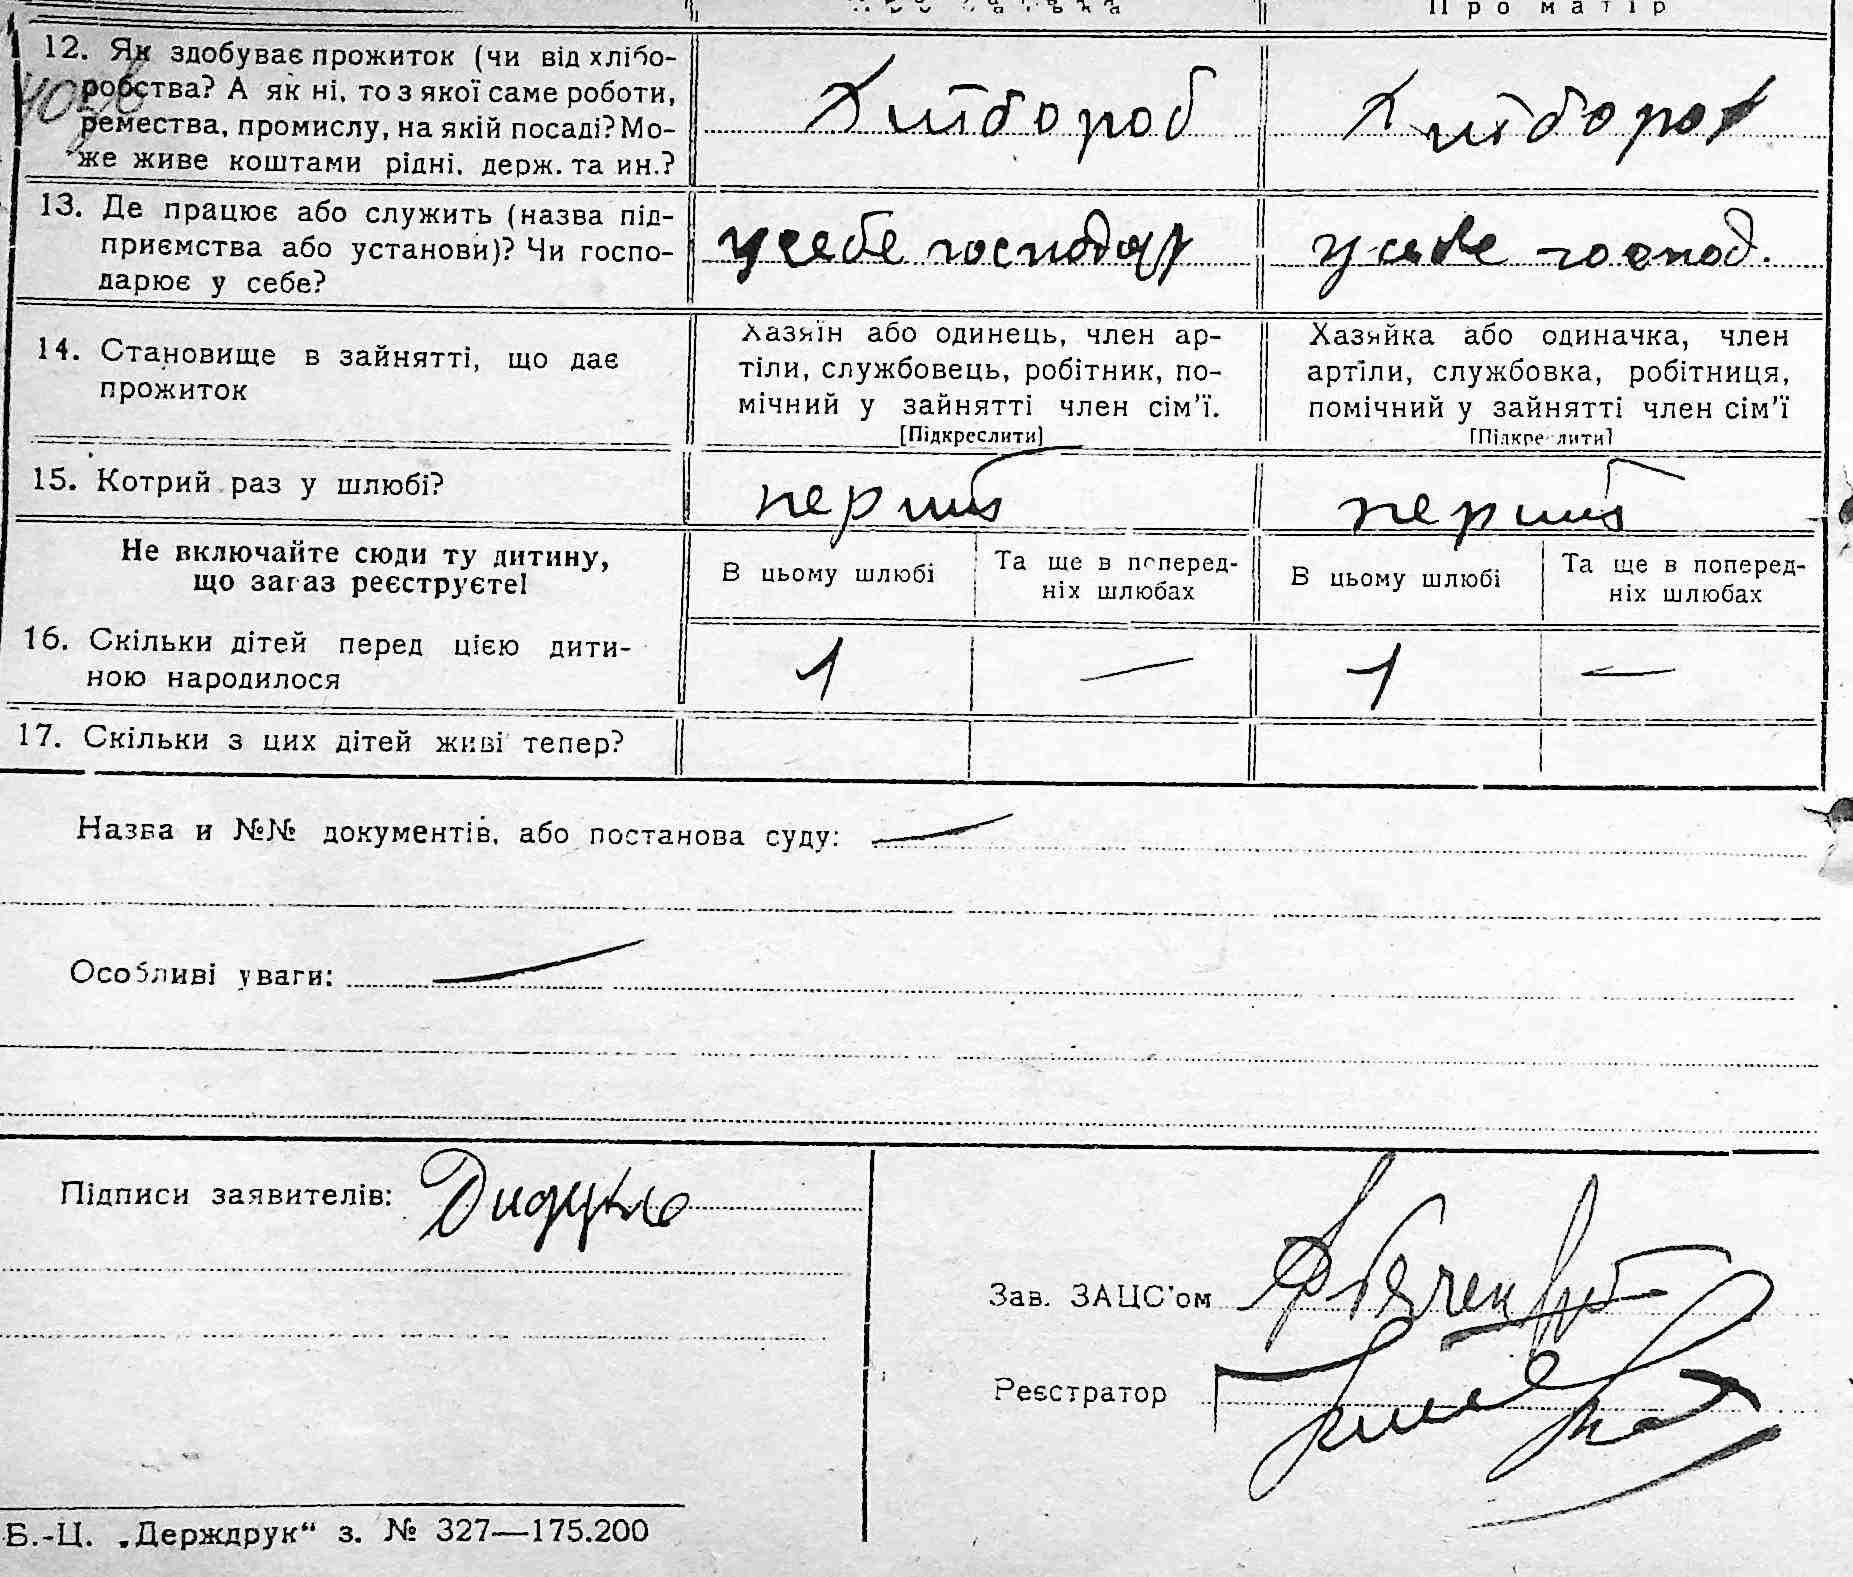 Про матір
12. Як здобуває прожиток (чи від хлібо-
робства? А як ні, то з якої саме роботи,
ремества, промислу, на якій посаді? Мо-
же живе коштами рідні, держ. та ин.?
Хлібороб
Хлібороб
13. Де працює або служить (назва під-
приємства або установи)? Чи госпо-
дарює у себе?
у себе господар
у себе господ.
14. Становище в зайнятті, що дає
прожиток
Хазяїн або одинець, член ар-
тіли, службовець, робітник, по-
мічний у зайнятті член сім'ї.
[Підкреслити]
Хазяйка або одиначка, член
артіли, службовка, робітниця,
помічний у зайнятті член сім'ї
[Підкреслити]
15. Котрий раз у шлюбі?
перший
перший
Не включайте сюди ту дитину,
що зараз реєструєте!
В цьому шлюбі
Та ще в поперед-
ніх шлюбах
В цьому шлюбі
Та ще в поперед-
ніх шлюбах
16. Скільки дітей перед цією дити-
ною народилося
1
—
1
—
17. Скільки з цих дітей живі тепер?
Назва и №№ документів, або постанова суду: —
Особливі уваги: —
Підписи заявителів:
Зав. ЗАЦС'ом
Реєстратор
Б.-Ц. „Держдрук“ з. № 327—175.200